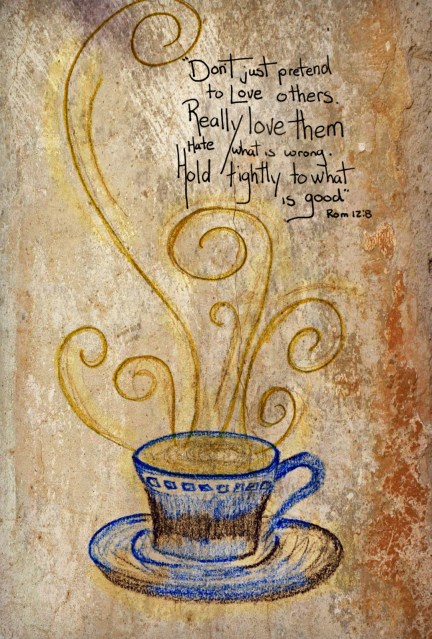 "Don't just pretend
to Love others.
Really love them
Hate what is wrong.
Hold tightly to what
is good"
Rom 12:8